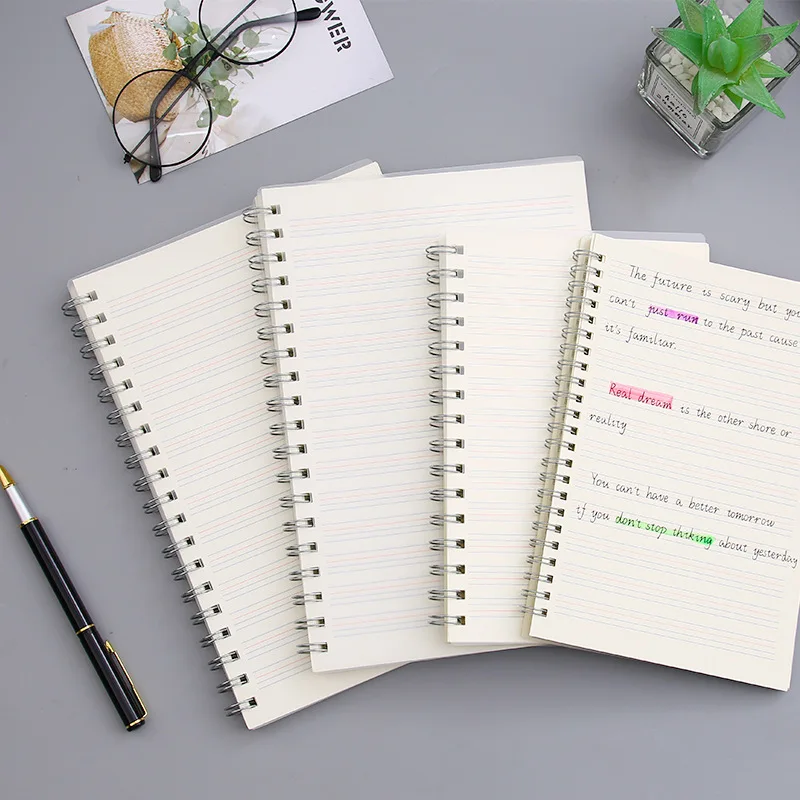 OWER
hello
summer
The future is scary but you
can't just run to the past cause
it's familiar.
Real dream is the other shore or
reality
You can't have a better tomorrow
if you don't stop thiking about yesterday